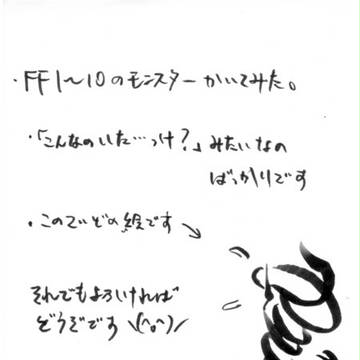 ・FF1〜10のモンスターかいてみた。
・「こんなのいた…っけ?」みたいなの
ばっかりです
・このていどの絵です→
それでもよろければ
どうぞです \(^o^)/